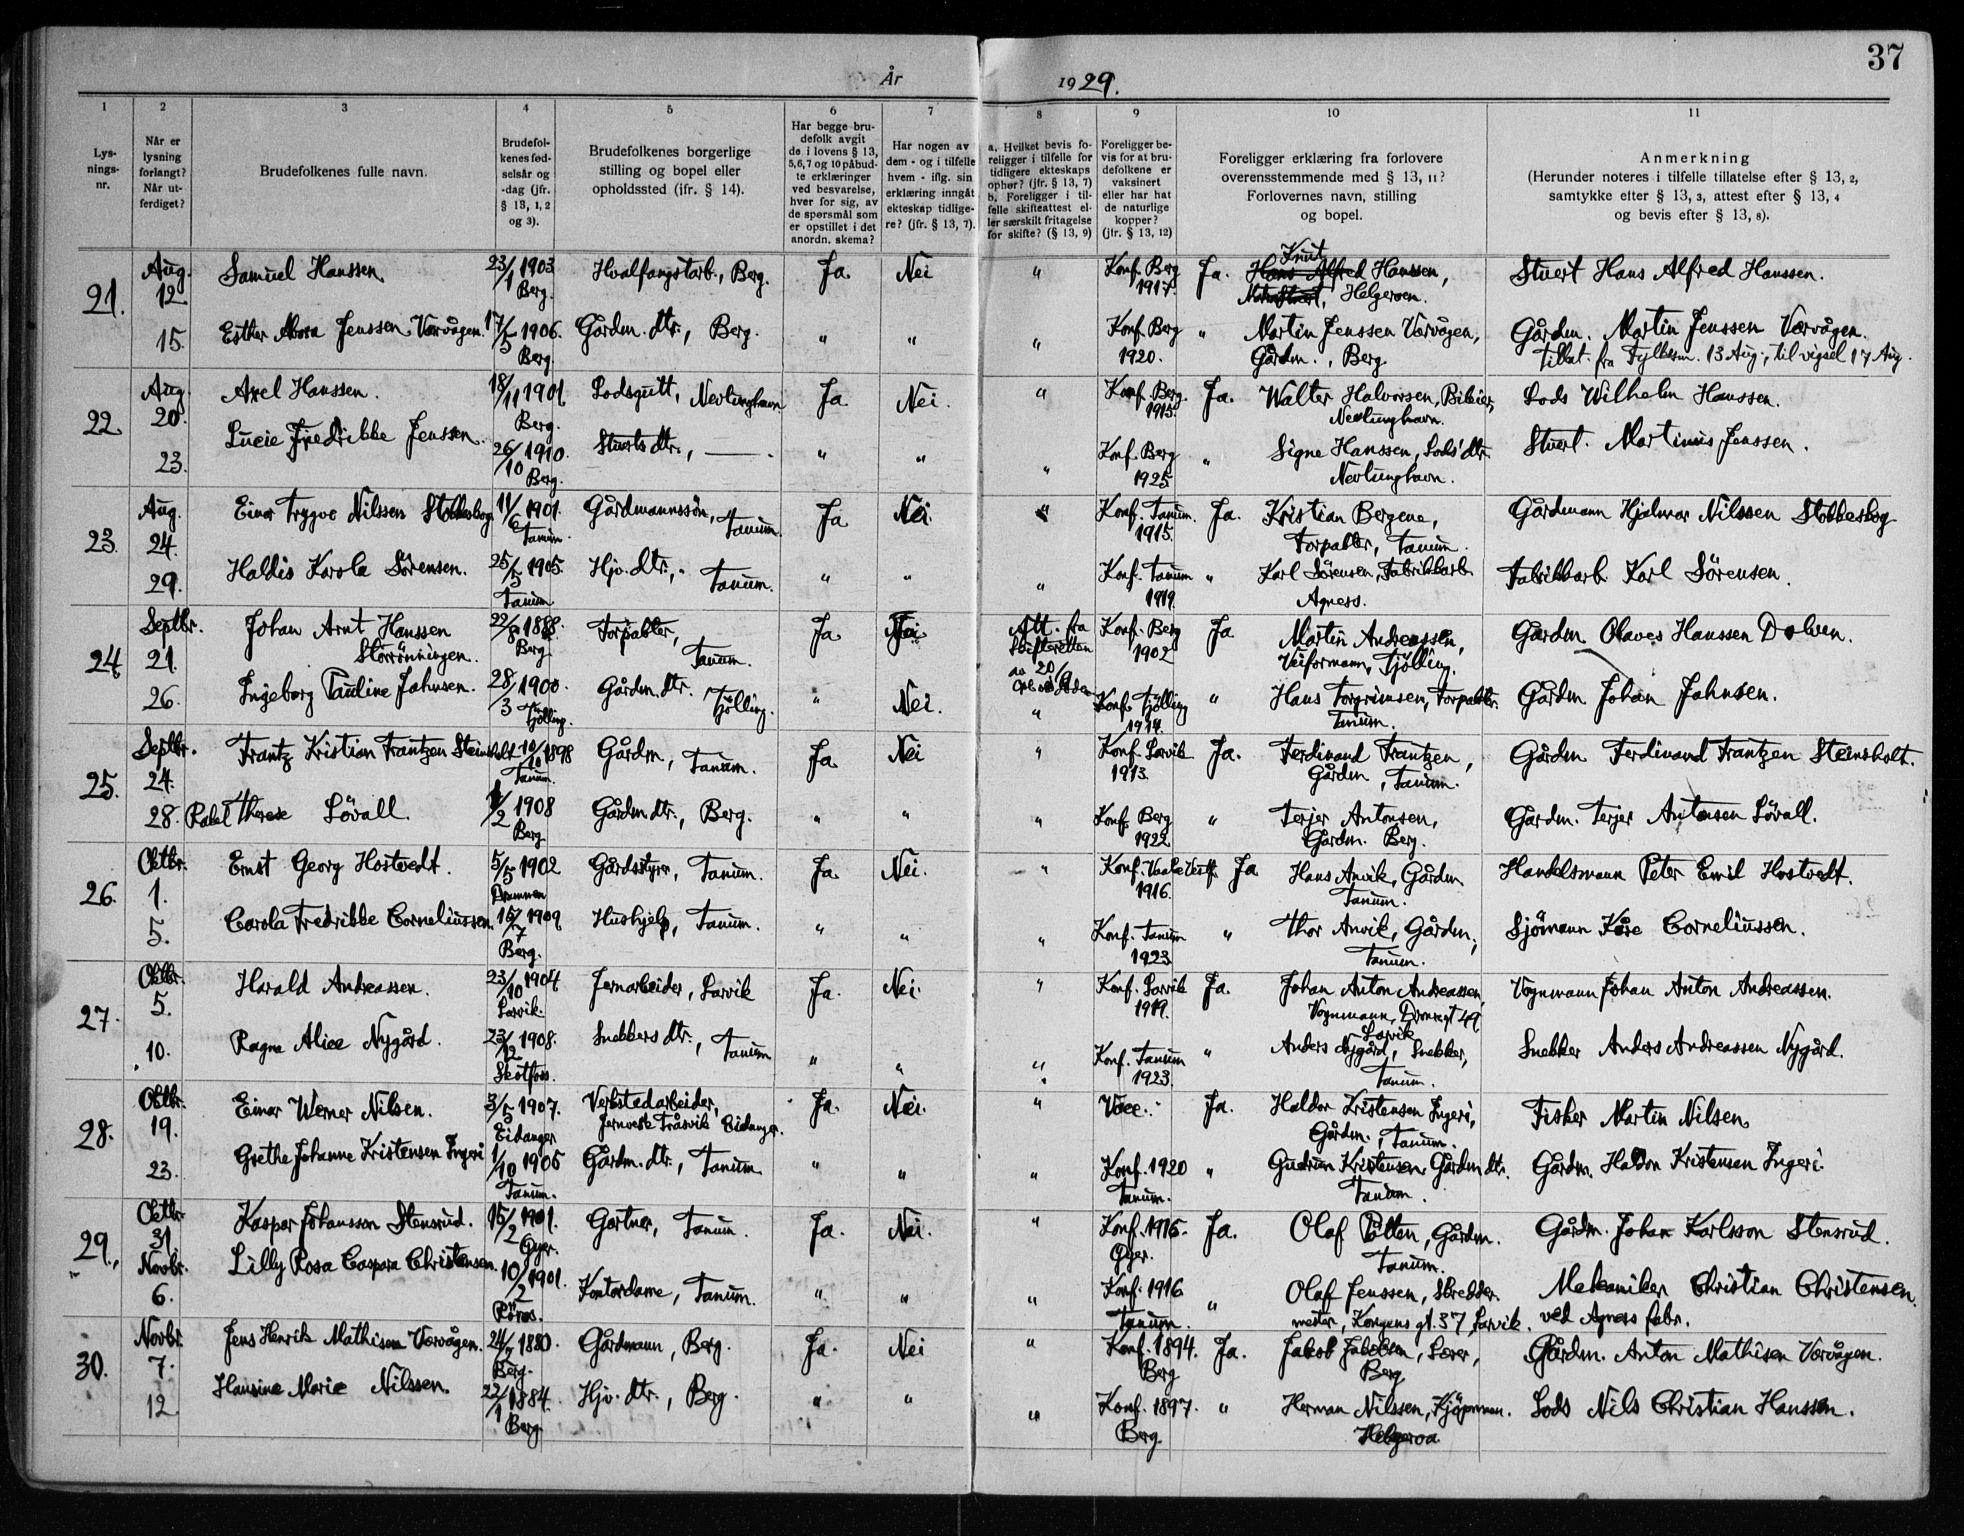 37
År 1929.
1 2 3 4 5 6 7 8 9 10 11
Lysningsnr.
Når er lysning forlangt? Når utferdiget?
Brudefolkenes fulle navn.
Brudefolkenes fødselsår og -dag (jfr. § 13, 1, 2 og 3).
Brudefolkenes borgerlige stilling og bopel eller opholdssted (jfr. § 14).
Har begge brudefolk avgit de i lovens § 13, 5, 6, 7 og 10 påbudte erklæringer ved besvarelse, hver for sig, av de spørsmål som er opstillet i det anordn. skema?
Har nogen av dem - og i tilfelle hvem - iflg. sin erklæring inngåt ekteskap tidligere? (jfr. § 13, 7).
a. Hvilket bevis foreligger i tilfelle for tidligere ekteskaps ophør? (jfr. § 13, 7) b. Foreligger i tilfelle skifteattest eller særskilt fritagelse for skifte? (§ 13, 9)
Foreligger bevis for at brudefolkene er vaksinert eller har hat de naturlige kopper? (jfr. § 13, 12)
Foreligger erklæring fra forlovere overensstemmende med § 13, 11? Forlovernes navn, stilling og bopel.
Anmerkning (Herunder noteres i tilfelle tillatelse efter § 13, 2, samtykke efter § 13, 3, attest efter § 13, 4 og bevis efter § 13, 8).
21. Aug. 12 Samuel Hanssen 23/1 1903 Berg. Hvalfangstarb., Berg. Ja Nei " Konf. Berg 1917. Ja. Knut Hans Alfred Hanssen, Helgeroen. Stuert Hans Alfred Hanssen.
15. Esther Nora Jenssen Vorvågen. 17/5 1906. Berg. Gårdm. dtr., Berg. " " " Konf. Berg 1920. " Martin Jenssen Vorvågen, Gårdm., Berg Gårdm. Martin Jenssen Vorvågen.
Tillat. fra Fylkesm. 13 Aug., til vigsel 17 Aug.
22. Aug. 20. Axel Hanssen. 18/11 1901. Berg. Lodsgutt, Nevlunghavn Ja Nei. " Konf. Berg. 1915. Ja. Walter Halvorsen, Nevlunghavn. Lods Wilhelm Hanssen.
23. Lucie Fredrikke Jenssen. 26/10 1910. Berg. Stuerts dtr., — " " " Konf. Berg 1925 " Signe Hanssen, Lods' dtr. Nevlunghavn. Stuert. Martinus Jenssen.
23. Aug. 24. Einar Trygve Nilssen Stokkeskog 11/6 1901. Tanum. Gårdmannssøn, Tanum. Ja Nei. " Konf. Tanum. 1915. Ja. Kristian Bergene, Forpakter, Tanum. Gårdmann Hjalmar Nilssen Stokkeskog
29. Haldis Karola Sörensen. 25/5 1905. Tanum Hjv. dtr., Tanum. " " " Konf. Tanum 1919. " Karl Sörensen, Fabrikkarb. Agness. Fabrikkarb Karl Sörensen.
24 Septbr. 21. Johan Arnt Hanssen Störrönningen. 22/8 1888. Berg. Forpakter, Tanum. Ja Ja Att. fra Skifteretten av 20/9 Konf. Berg 1902 Ja Martin Andreassen, Veiformann, Tjölling. Gårdm Olaves Hanssen Dolven.
26. Ingeborg Pauline Jahnsen. 28/3 1900. Tjölling. Gårdm. dtr. Tjölling. " Nei. " Konf. Tjölling 1914. " Hans Torgrimsen, Forpakter. Tanum. Gårdm Johan Jahnsen.
25. Septbr. 24. Frantz Kristian Frantzen Steinsholt 10/10 1898 Tanum. Gårdm, Tanum. Ja Nei " Konf. Larvik 1913. Ja. Ferdinand Frantzen, Gårdm, Tanum. Gårdm Ferdinand Frantzen Steinsholt.
28. Rakel Therese Lövall. /2 1908 Berg. Gårdm. dtr., Berg. " " " Konf. Berg 1922 " Terjer Antonsen, Gårdm. Berg. Gårdm. Terjer Antonsen Lövall.
26. Oktbr. 1. Ernst Georg Hostvedt. 5/5 1902 Drammen Gårdsstyrer, Tanum. Ja Nei. " Konf. Vaale Vestf. 1916. Ja Hans Anvik, Gårdm Tanum. Handelsmann Peter Emil Hostvedt.
5. Carola Fredrikke Corneliussen. 15/7 1909 Berg. Hushjelp, Tanum. " " " Konf. Tanum 1923. " Thor Anvik, Gårdm, Tanum. Sjömann Kåre Corneliussen.
27. Oktbr. 5. Harald Andreassen. 23/10 1904 Larvik. Jernarbeider, Larvik Ja. Nei. " Konf. Larvik 1919. Ja. Johan Anton Andreassen, Vognmann, Dronnsgt 49 Larvik Vognmann Johan Anton Andreassen.
10. Ragna Alice Nygård. 23/12 1908. Skotfoss. Snekkers dtr., Tanum " " " Konf. Tanum 1923. " Anders Nygård, Snekker, Tanum. Snekker Anders Andreassen Nygård.
28. Oktbr. 19. Einar Werner Nilsen. 3/5 1907. Eidanger Verkstedarbeider, Eidanger. Ja. Nei. " Vacc. Ja. Haldor Kristensen Ingeri, Gårdm., Tanum. Fisker Martin Nilsen
23. Grethe Johanne Kristensen Ingeri 1/10 1905 Tanum. Gårdm. dtr., Tanum " " " Konf. 1920 Tanum. " Gudrun Kristensen Gårdm dtr. Tanum. Gårdm. Haldor Kristensen Ingeri.
29. Oktbr. 31 Kaspar Johansson Stensrud. 15/2 1901. Gjer. Gartner, Tanum. Ja. Nei. " Konf. 1916. Gjer. Ja. Olaf Pålten, Gårdm. Tanum. Gårdm. Johan Karlsson Stensrud.
Novbr. 6. Lilly Rosa Caspara Christensen. 10/2 1901. Röros. Kontordame, Tanum. " " " Konf. 1916 Tanum. " Olaf Jenssen, Skreddermester, Kongens gt. 37 Larvik. Mekaniker Christian Christensen. ved Agness fabr.
30. Novbr 7. Jens Henrik Mathisen Vorvågen. 24/7 1880. Berg. Gårdmann, Berg. Ja. Nei " Konf. 1894. Berg Ja. Jakob Jakobsen, Lærer, Berg Gårdm. Anton Mathisen Vorvågen.
12 Hansine Marie Nilssen. 22/1 1884. Berg. Hjv. dtr., Berg. " " " Konf. 1897. Berg. " Herman Nilssen, Kjöpmann. Helgeroa. Lods Nils Christian Hanssen.